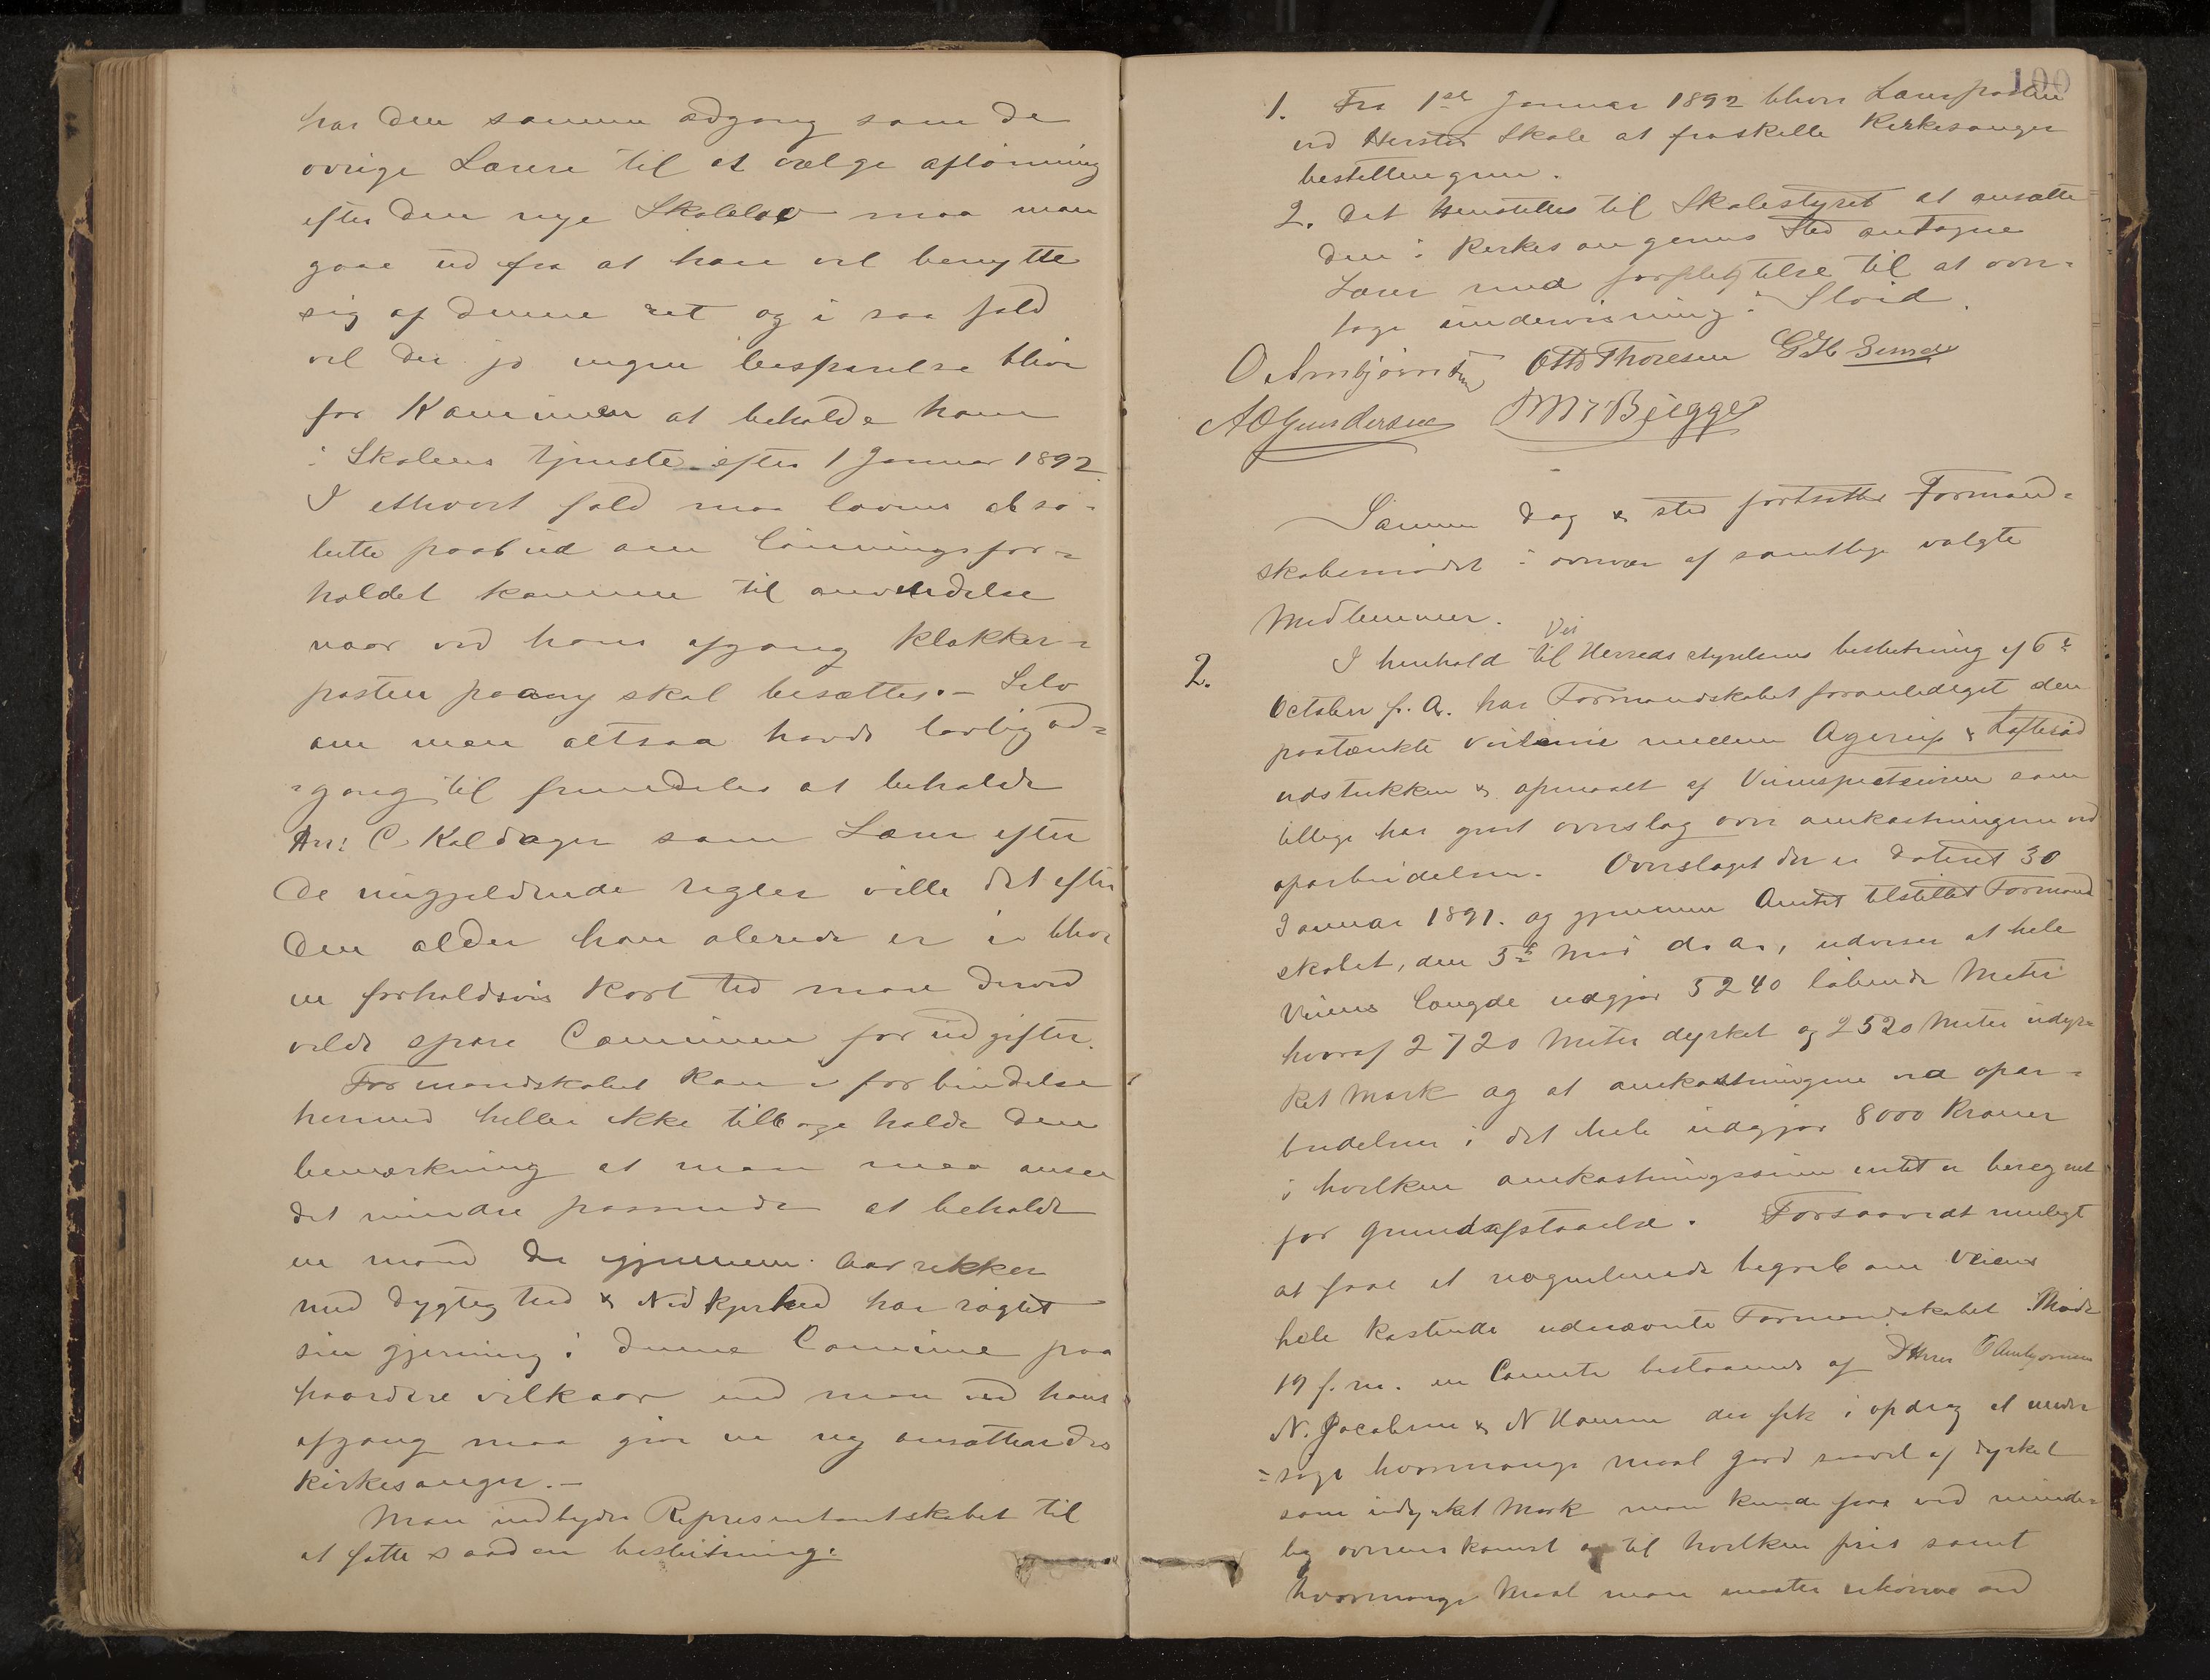 har den samme adgang som de
øvrige Lærere til at vælge aflønning
efter den nye Skolelov maa man
gaae ud fra at han vil benytte
sig af denne ret og i saa fald
vil der jo ingen besparelse blive
for Kommunen at beholde ham
i Skolens tjeneste efter 1 Januar 1892.
I ethvert fald maa lovens abso-
lutte paabud om lønningsfor=
holdet komme til anvendelse
naar ved hans afgang Klokker=
posten paany skal besættes. – Selv
om man altsaa havde lovlig ad=
=gang til fremdeles at beholde
Hr: C. Kaldager som Lærer efter
de nugjeldende regler ville det efter
den alder han alerede er i blive
en forholdsvis kort tid man derved
vilde spare Communen for udgifter.
Formandskabet kan i forbindelse
hermed heller ikke tilbage holde den
bemærkning at man maa ansee
det mindre passende at beholde
en mand der igjennem Aarrekker
med dygtighed & Nidkjerhed har røgtet
sin gjerning i denne Comune paa
haardere vilkaar end man ved hans
afgang maa give en ny ansættendes
Kirkesanger. –
Man indbyder Representantskabet til
at fatte saadan beslutning:
100
1. Fra 1ste Januar 1892 bliver Lærerposten
ved Skole at fraskille Kirkesanger
bestillingen.
2. Det henstilles til Skolestyret at ansætte
den i Kirkesangerens Sted antagne
Lærer med forpligtelse til at over=
tage undervisning i Sløid.
O. Arnbjørnsen Otto Thoresen
A O Gundersen Bjegge
Samme Dag & sted fortsattes Formand=
skabsmødet i overvær af samtlige valgte
Medlemmer.
Vei
2. I henhold til Herredsstyrelsens beslutning af 6te
October f. A. har Formandskabet foranlediget den
paatænkte veilinie mellem Agerup & Loftesød
udstukken & opmaalt af Veiinspecteuren som
tillige har gjort overslag over omkostningerne ved
oparbeidelsen. Overslaget der er dateret 30
Januar 1891. og gjennem Amtet tilstillet Formand
skabet, den 5te Mai d. A., udviser at hele
Veiens længde udgjør 5240 løbende Meter
hvoraf 2720 Meter dyrket og 2520 Meter udyr=
ket Mark og at omkostningene ved opar=
beidelsen i det hele udgjør 8000 Kroner
i hvilken omkostningssum intet er beregnet
for grundafstaaelse. Forsaavidt muligt
at faae et nogenlunde begreb om Veiens
hele kostende udnævnte Formandskabet i Møde
19 f. m. en Comite bestaaende af D'Herrer O Arnbjørnsen
N. Jacobsen & N Hansen der fik i opdrag at under
=søge hvormange maal Jord saavel af dyrket
som udyrket Mark man kunde faae ved minde=
lig overenskomst og til hvilken pris samt
hvormange Maal man maatte erhverve ved